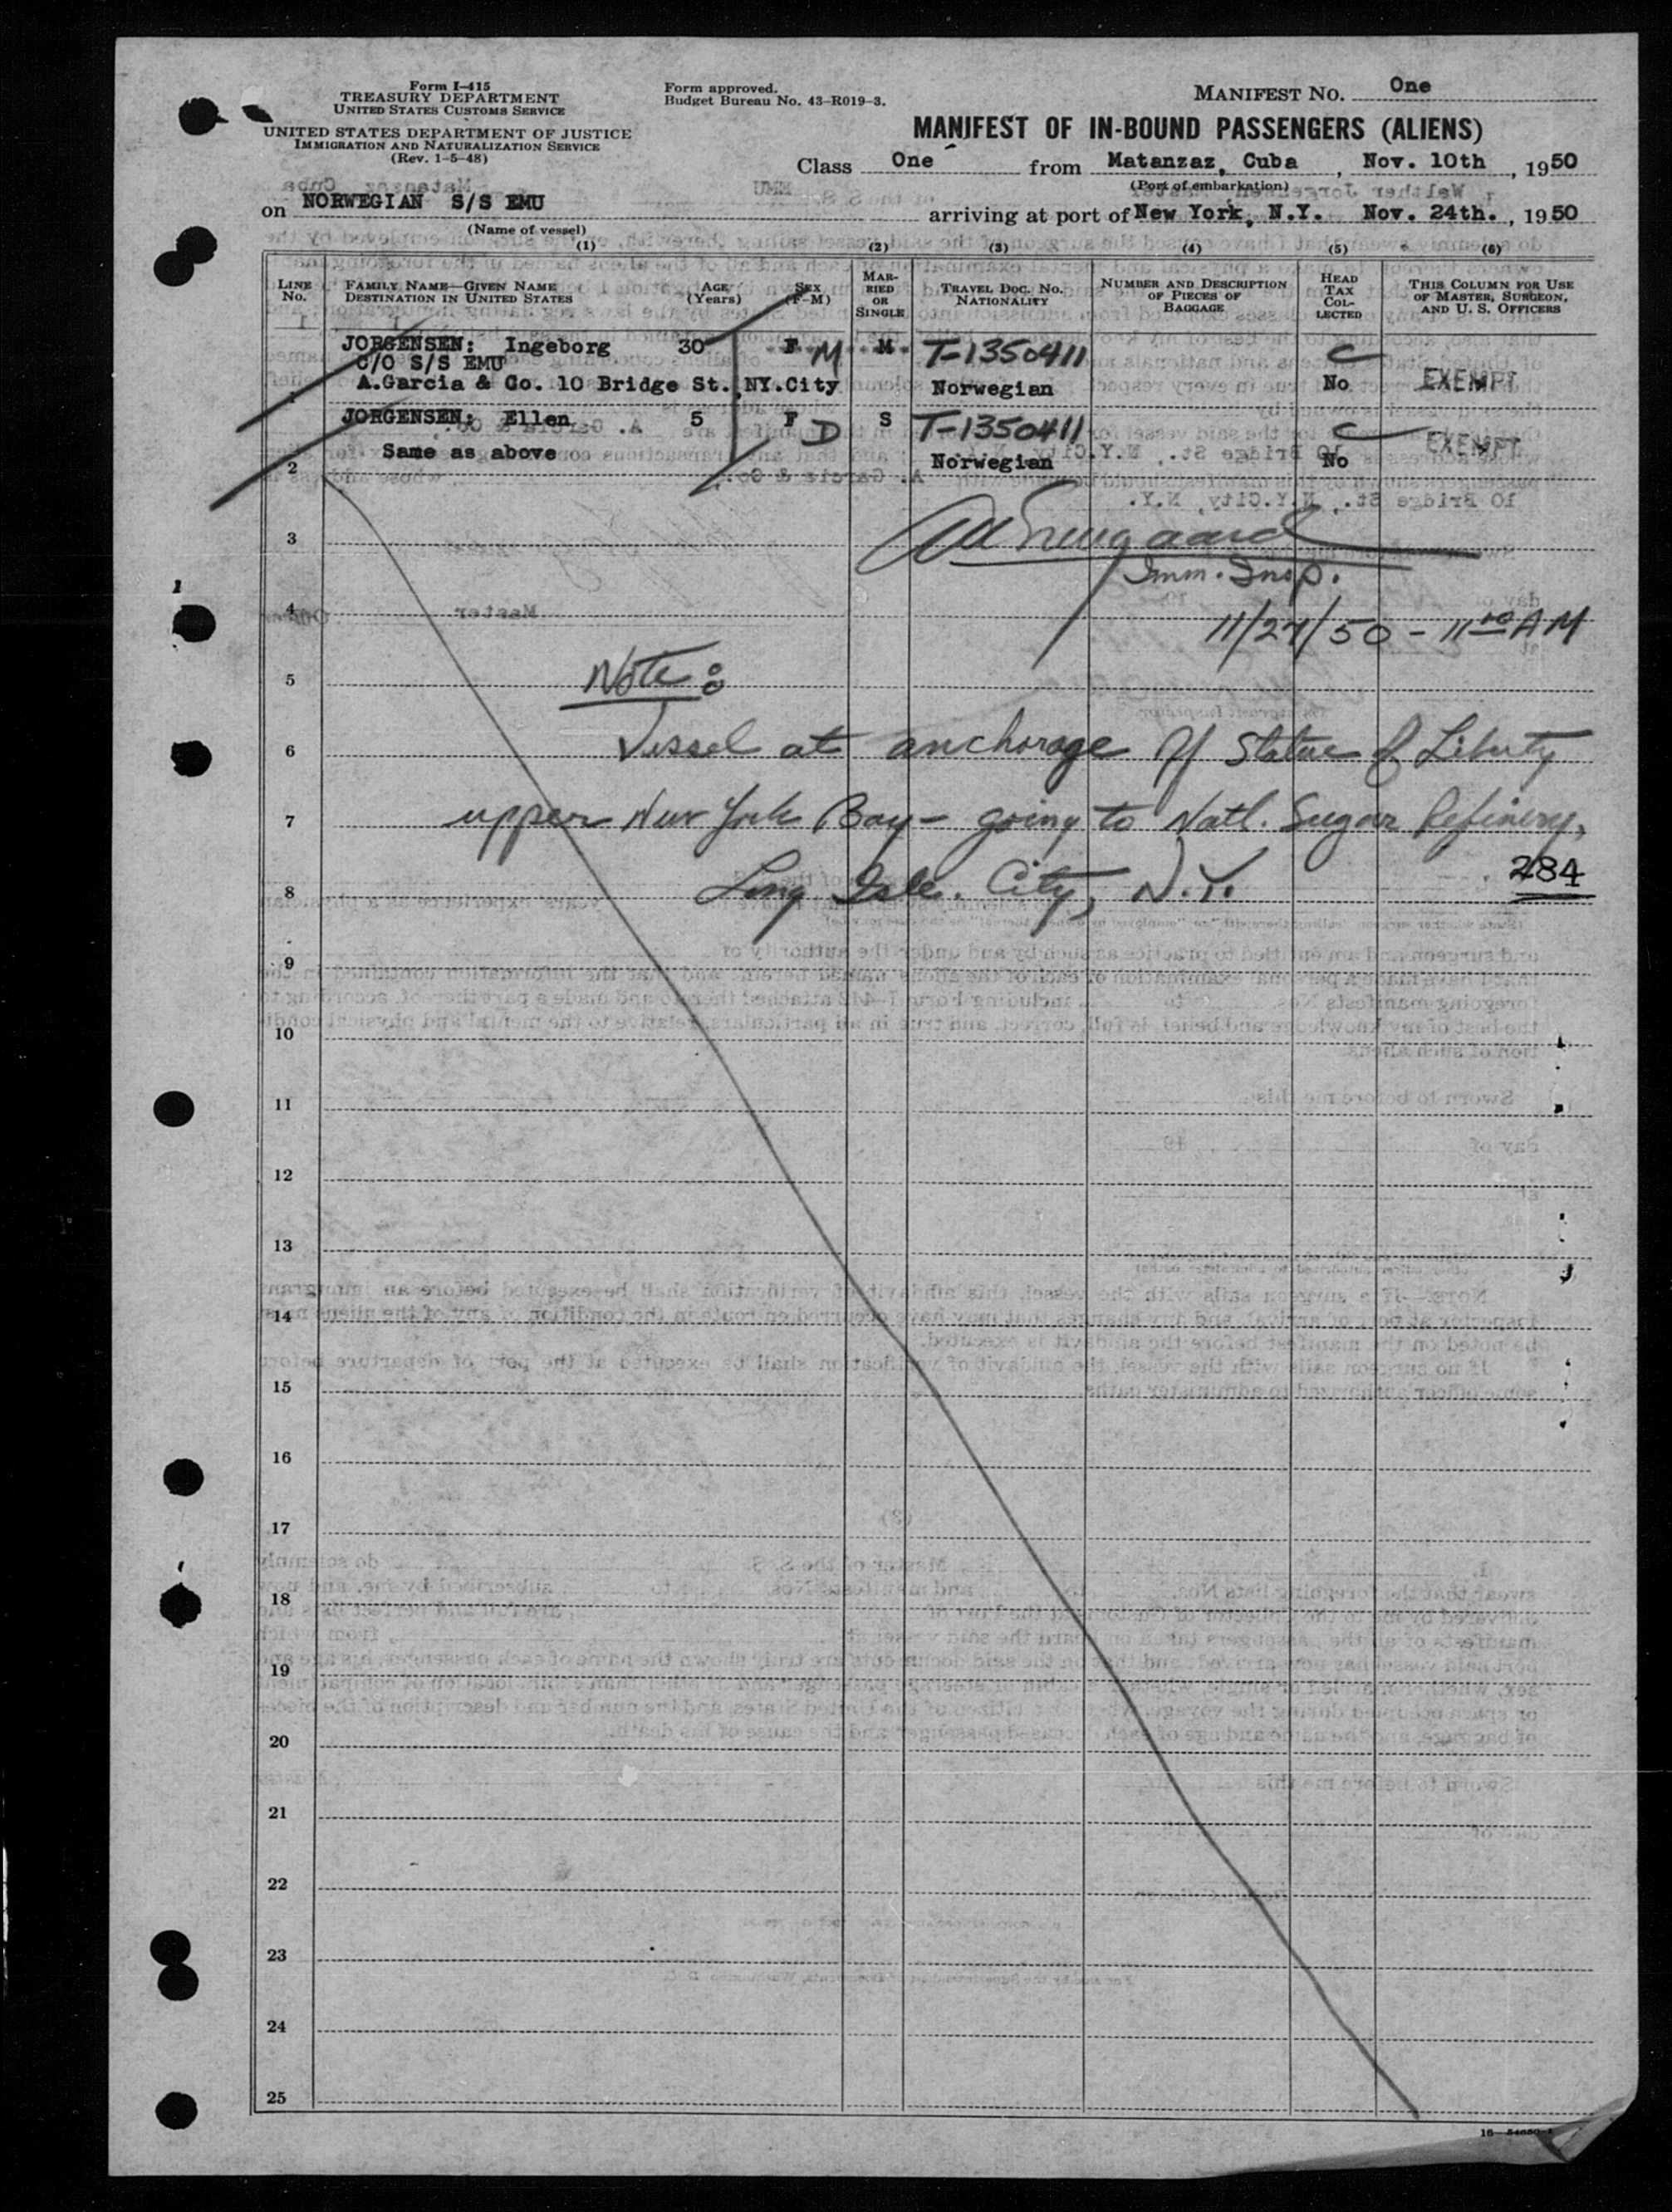 Form I-415
TREASURY DEPARTMENT
UNITED STATES CUSTOMS SERVICE
UNITED STATES DEPARTMENT OF JUSTICE
IMMIGRATION AND NATURALIZATION SERVICE
(Rev. 1-5-48)
Form approved.
Budget Bureau No. 43-R019-3.
MANIFEST NO. One
MANIFEST OF IN-BOUND PASSENGERS (ALIENS)
Class One from Matanzaz, Cuba, Nov. 10th, 1950
(Port of embarkation)
on NORWEGIAN S/S EMU arriving at port of New York, N.Y. Nov. 24th., 1950
(Name of vessel)
(1) (2) (3) (4) (5) (6)
LINE No. FAMILY NAME—GIVEN NAME DESTINATION IN UNITED STATES AGE (Years) SEX (F-M) MARRIED OR SINGLE TRAVEL DOC. NO. NATIONALITY NUMBER AND DESCRIPTION OF PIECES OF BAGGAGE HEAD TAX COLLECTED THIS COLUMN FOR USE OF MASTER, SURGEON, AND U. S. OFFICERS
JORGENSEN: Ingeborg 30 F M M T-1350411 C
C/O S/S EMU
1 A.Garcia & Co. 10 Bridge St. NY.City Norwegian No EXEMPT
JORGENSEN: Ellen 5 F D S T-1350411 C EXEMPT
2 Same as above Norwegian No
3
Imm. Insp.
4 11/27/50 - 11 00 AM
5 Note:
6 Vessel at anchorage off Statue of Liberty
7 upper New York Bay - going to Natl. Sugar Refinery,
284
8 Long Isle. City, N.Y.
9
10
11
12
13
14
15
16
17
18
19
20
21
22
23
24
25